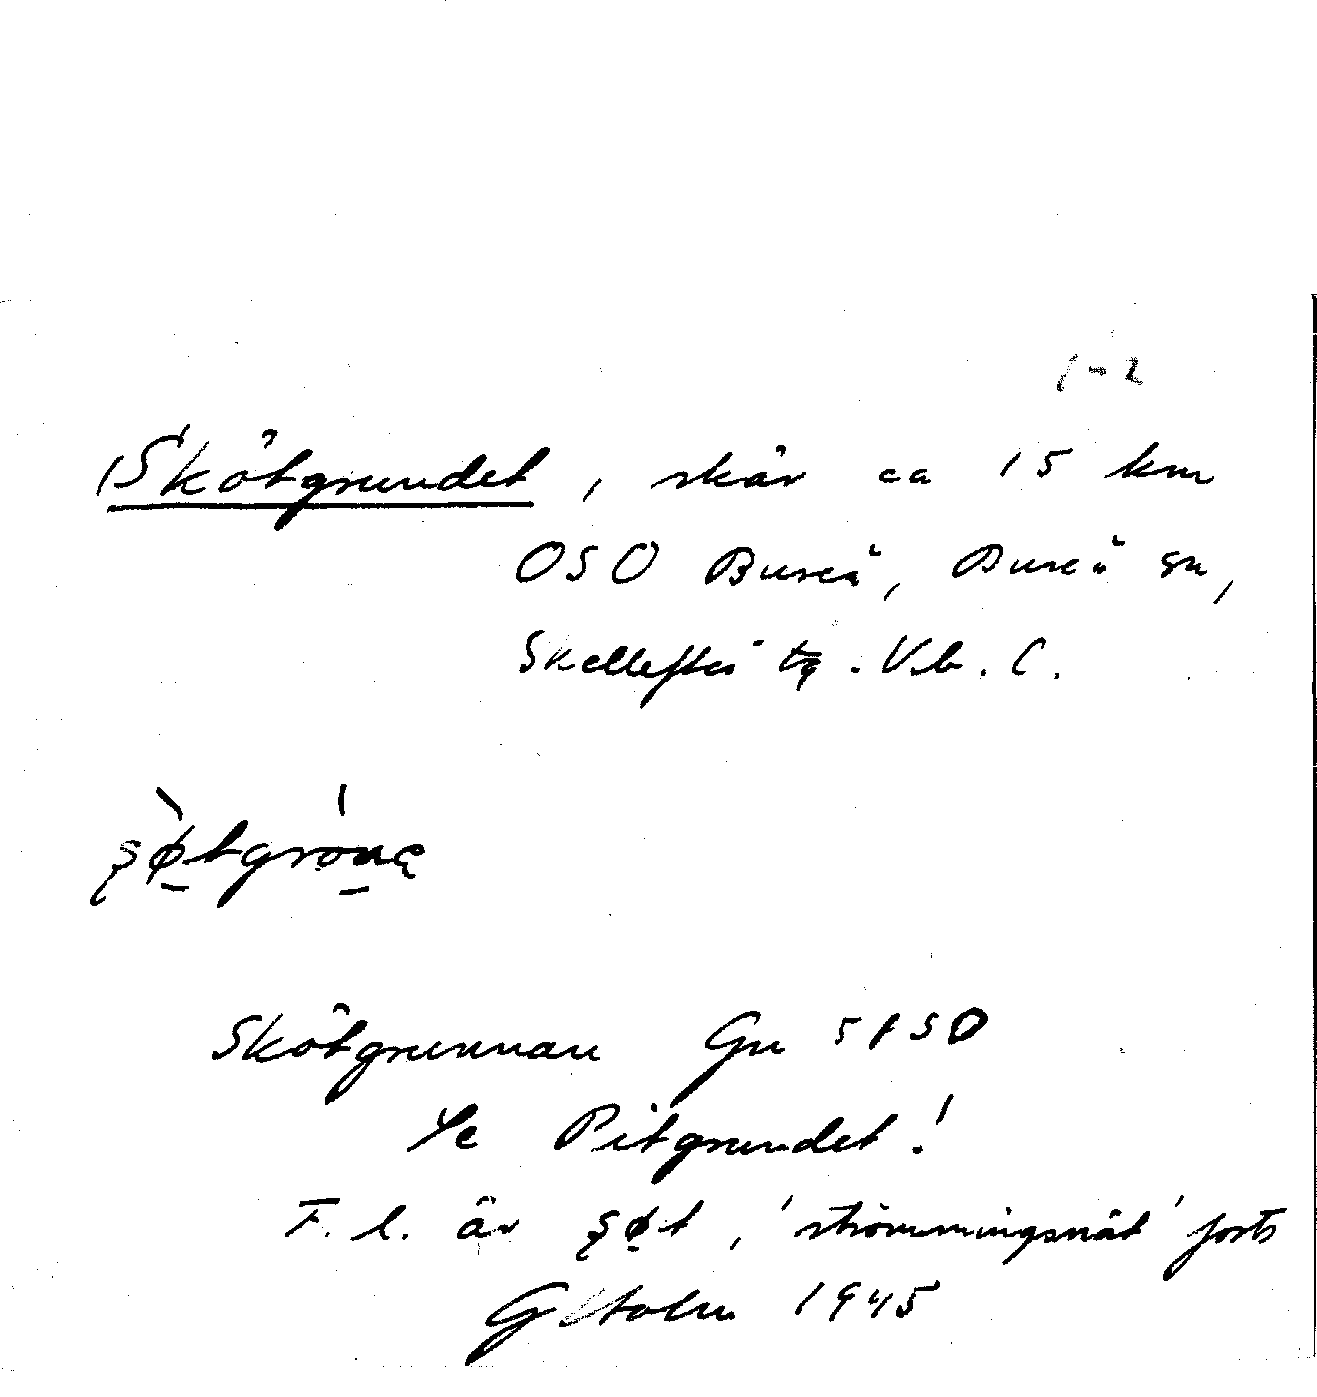 1-2
Skötgrundet, skär ca 15 km
OSO Bureå, Bureå sn,
Skellefteå tg. Vb. C.
Skötgrunnan Gu
Se Pitgrundet!
F.l. är 'strömmingsnät' forts
G Holm 1945